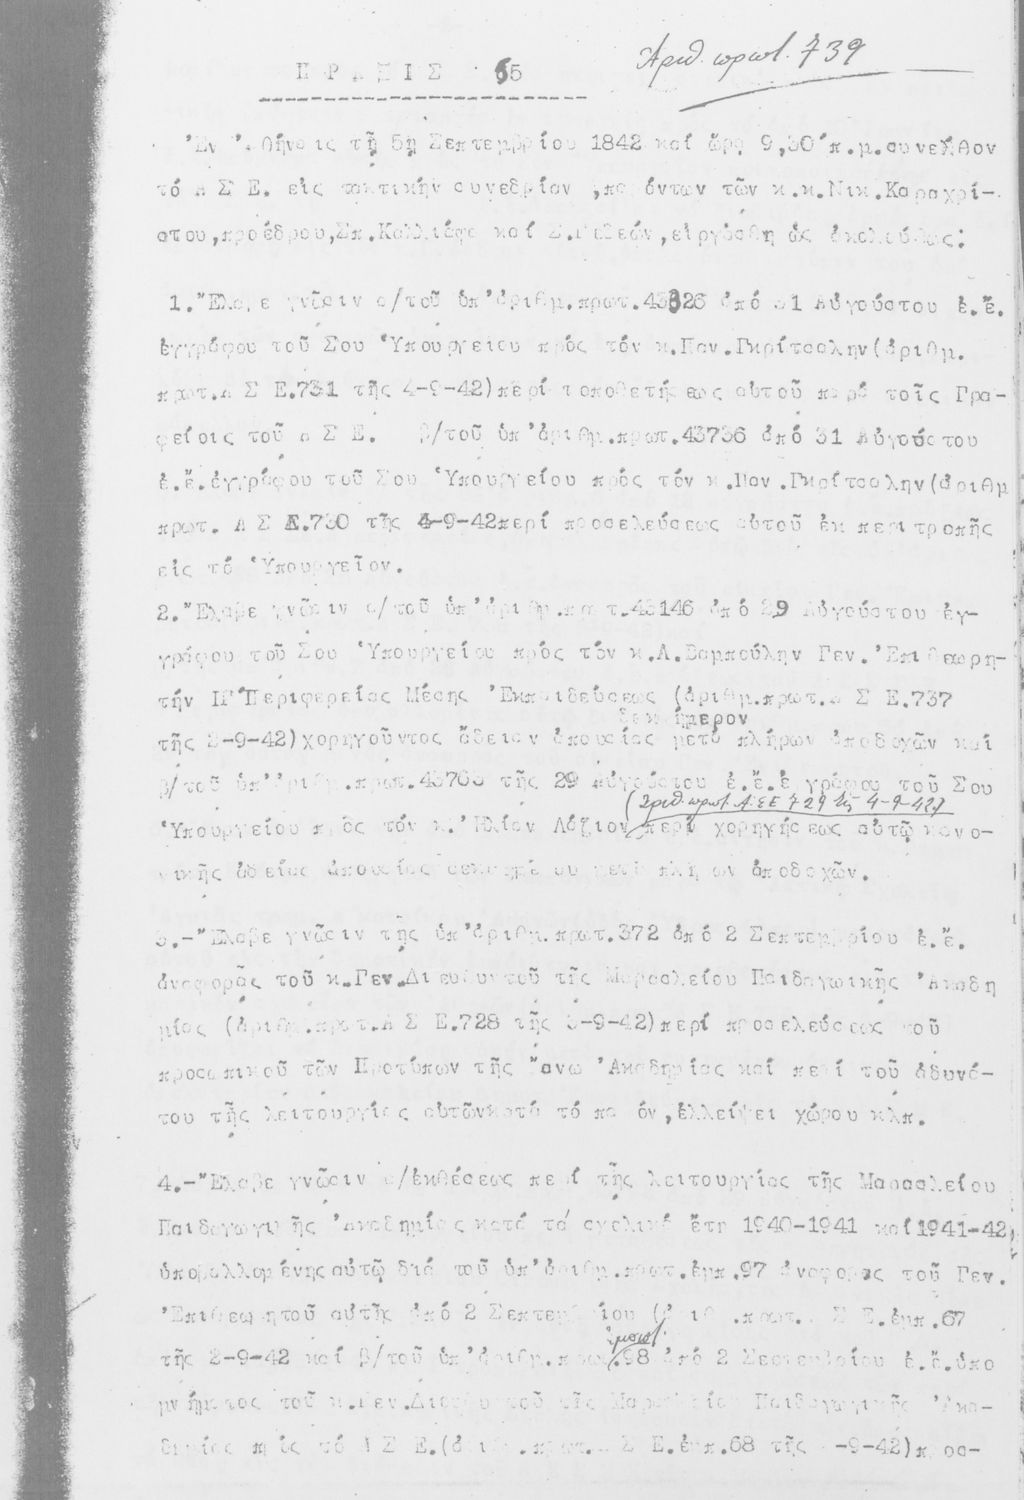 Ἀριθ. πρωτ. 739
ΠΡΑΞΙΣ 65
Ἐν Ἀθήναις τῇ 5ῃ Σεπτεμβρίου 1842 καί ὥρᾳ 9,30 π.μ.συνελθον
τό Α Σ Ε. εἰς τακτικήν συνεδρίαν ,παρόντων τῶν κ.κ.Νικ.Καραχρί-
στου,προέδρου,Σπ.Καλλιάφα καί Σ.Γεδεών,εἰργάσθη ὡς ἀκολούθως:
1."Ελαβε γνῶσιν α/τοῦ ὑπ'ἀριθμ.πρωτ.43826 ἀπό 31 Αὐγούστου ἐ.ἔ.
ἐγγράφου τοῦ Σου Ὑπουργείου πρός τόν κ.Παν.Γκρίτσαλην(ἀριθμ.
πρωτ.Α Σ Ε.731 τῆς 4-9-42)περί τοποθετήσεως αὐτοῦ παρά τοῖς Γρα-
φείοις τοῦ Α Σ Ε. β/τοῦ ὑπ'ἀριθμ.πρωτ.43736 ἀπό 31 Αὐγούστου
ἐ.ἔ.ἐγγράφου τοῦ Σου Ὑπουργείου πρός τόν κ.Παν.Γκρίτσαλην(ἀριθμ
πρωτ. Α Σ Ε.730 τῆς 4-9-42περί προσελεύσεως αὐτοῦ ἐκ περιτροπῆς
εἰς τό Ὑπουργεῖον.
2."Ελαβε γνῶσιν α/τοῦ ὑπ'ἀριθμ.πρωτ.43146 ἀπό 29 Αὐγούστου ἐγ-
γράφου τοῦ Σου Ὑπουργείου πρός τόν κ.Λ.Βαμπούλην Γεν.Ἐπιθεωρη-
τήν ΙΓ'Περιφερείας Μέσης Ἐκπαιδεύσεως (ἀριθμ.πρωτ.Α Σ Ε.737
δεκαήμερον
τῆς 2-9-42)χορηγοῦντος ἄδειαν ἀπουσίας μετά πλήρων ἀποδοχῶν καί
β/τοῦ ὑπ'ἀριθμ.πρωτ. τῆς 29 Αὐγούστου ἐ.ἔ.ἐγράφου τοῦ Σου
(Ἀριθ. πρωτ. ΑΣΕ 729 τῆς 4-9-42)
Ὑπουργείου πρός τόν κ.Ἠλίαν Λάζιον περί χορηγήσεως αὐτῷ κανο-
νικῆς ἀδείας ἀπουσίας δεκαημέρου μετά πλήρων ἀποδοχῶν.
3.-"Ελαβε γνῶσιν τῆς ὑπ'ἀριθμ.πρωτ.372 ἀπό 2 Σεπτεμβρίου ἐ.ἔ.
ἀναφορᾶς τοῦ κ.Γεν.Διευθυντοῦ τῆς Μαρασλείου Παιδαγωικῆς Ἀκαδη
μίας (ἀριθμ.πρωτ.Α Σ Ε.728 τῆς 3-9-42)περί προσελεύσεως τοῦ
προσωπικοῦ τῶν Προτύπων τῆς "ανω Ἀκαδημίας καί περί τοῦ ἀδυνά-
του τῆς λειτουργίας αὐτῶνκατά τό παρόν,ἐλλείψει χώρου κλπ.
4.-"Ελαβε γνῶσιν α/ἐκθέσεως περί τῆς λειτουργίας τῆς Μαρασλείου
Παιδαγωγικῆς Ἀκαδημίας κατά τά σχολικά ἔτη 1940-1941 καί 1941-42
ὑποβαλλομένης αὐτῷ διά τοῦ ὑπ'ἀριθμ.πρωτ.ἐμπ.97 ἀναφορας τοῦ Γεν.
Ἐπιθεωρητοῦ αὐτῆς ἀπό 2 Σεπτεμβρίου (ἀριθμ.πρωτ.Α Σ Ε.ἐμπ.67
τῆς 2-9-42 καί β/τοῦ ὑπ'ἀριθμ.πρωτ.98 ἀπό 2 Σεπτεμβρίου ἐ.ἔ.ὑπο
μνήματος τοῦ κ.Γεν.Διευθυντοῦ τῆς Μαρασλείου Παιδαγωγικῆς Ἀκα-
δημίας πρός τό Α Σ Ε.(ἀριθμ.πρωτ.Α Σ Ε.ἐμπ.68 τῆς -9-42)προσ-